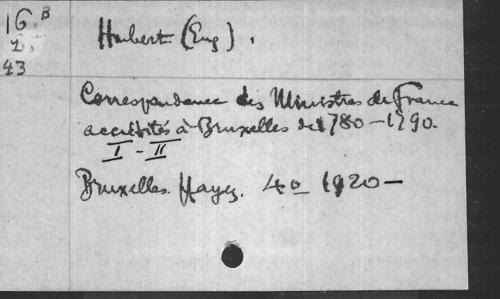 16.B
2.
43
Hubert (Eug).
Correspondance des Ministres de France
accrédités à Bruxelles de 1780-1790.
I - II
Bruxelles. Hayez. 4o 1920-